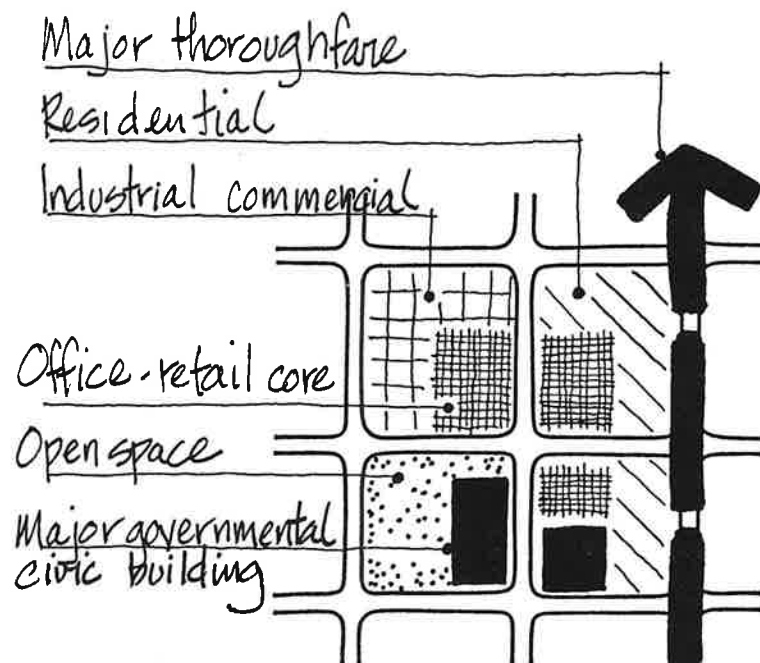 Major thoroughfare
Residential
Industrial commercial
Office-retail core
Open space
Major governmental
civic building